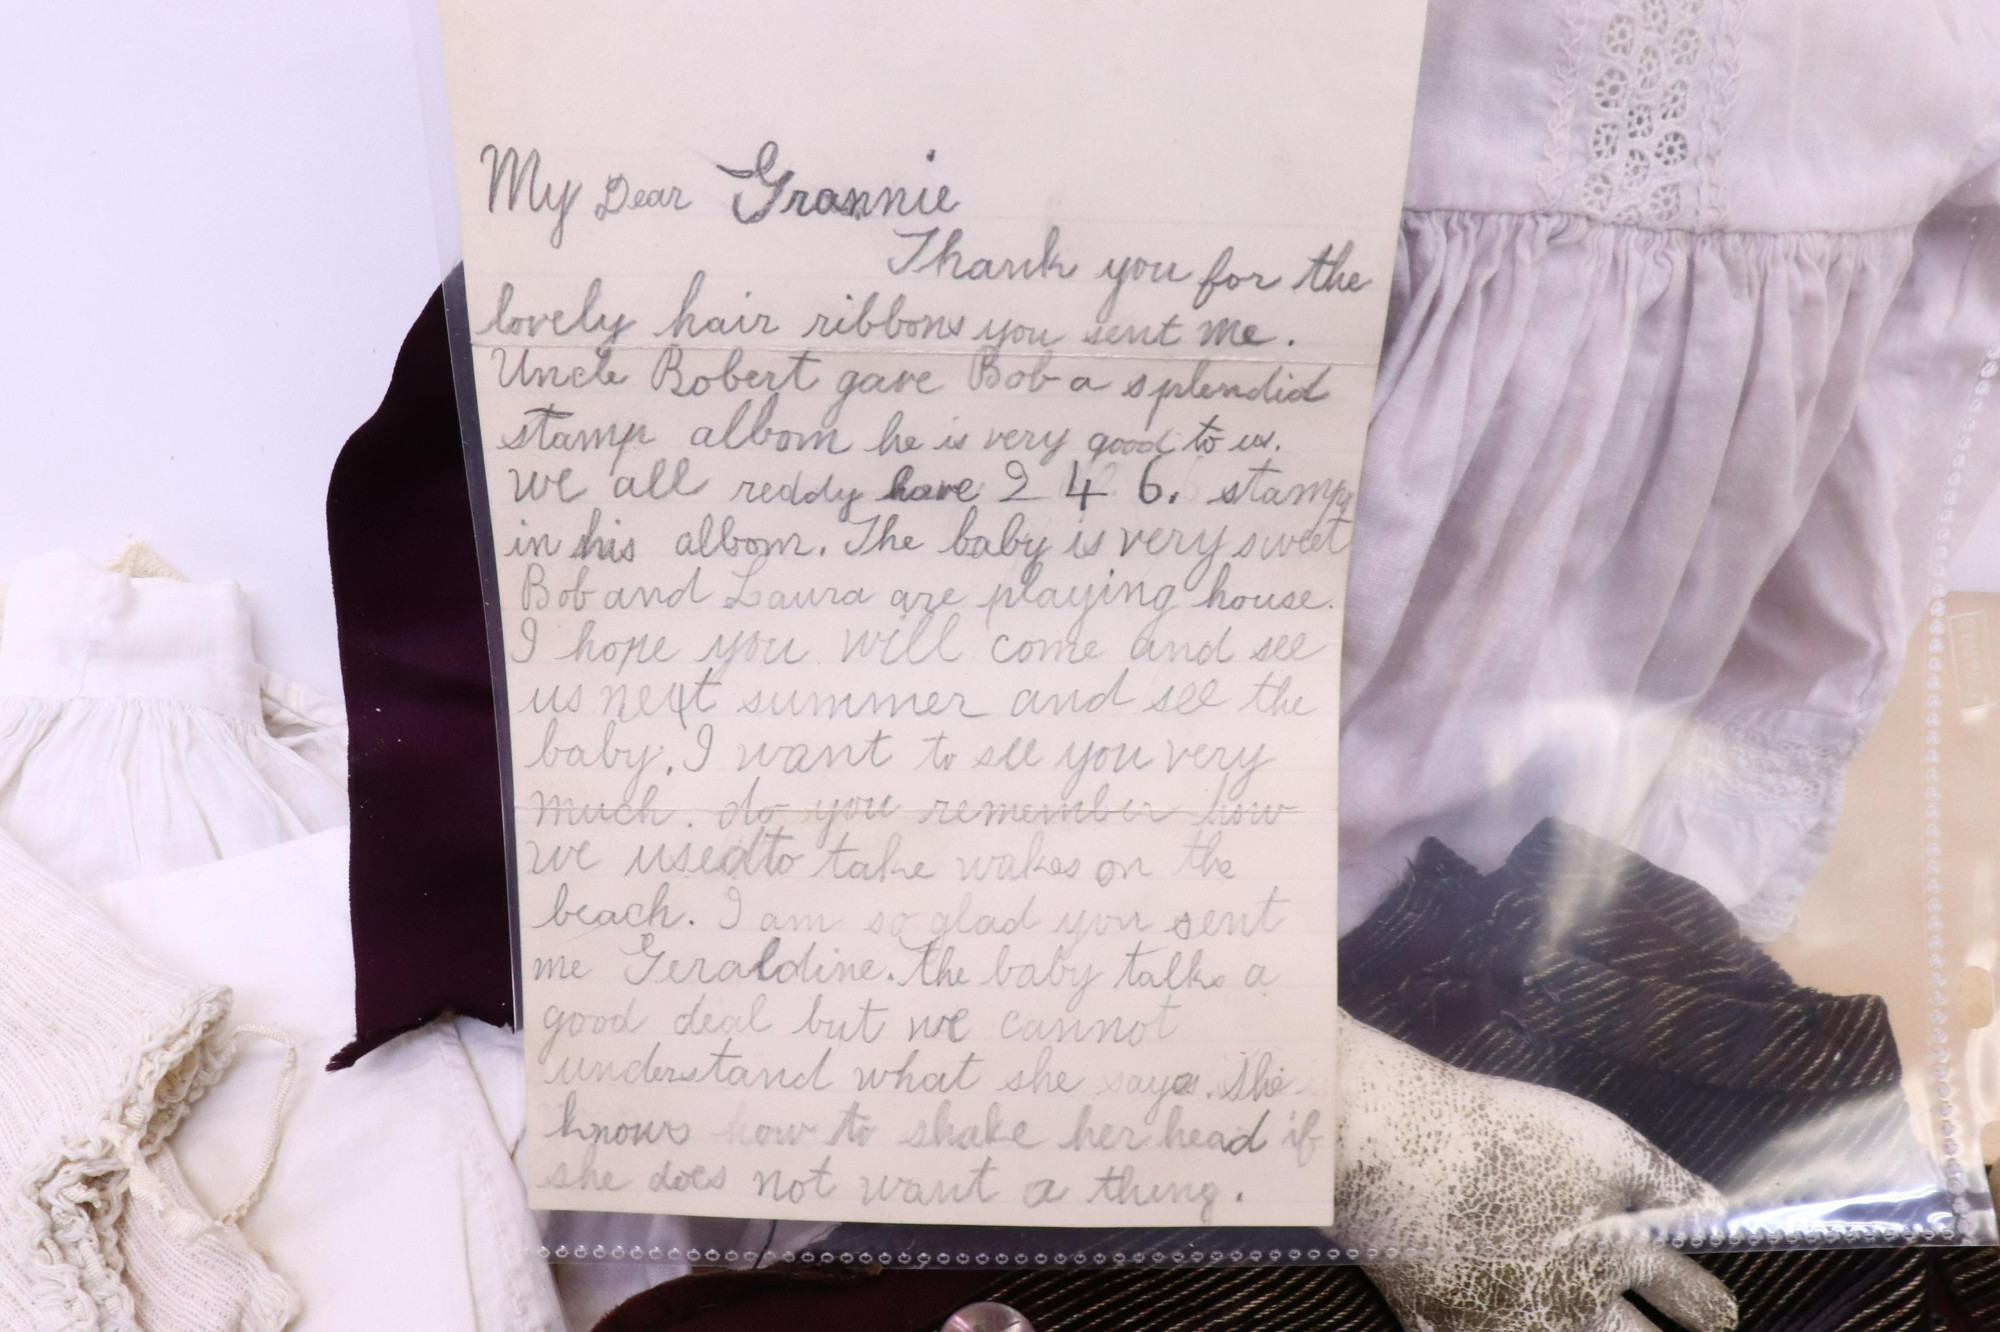 My Dear Grannie
Thank you for the
lovely hair ribbons you sent me.
Uncle Robert gave Bob a splendid
stamp albom he is very good to us.
we all reddy have 246. stamps
in his albom. The baby is very sweet
Bob and Laura are playing house.
I hope you will come and see
us next summer and see the
baby. I want to see you very
much. do you remember how
we used to take wakes on the
beach. I am so glad you sent
me Geraldine. the baby talks a
good deal but we cannot
understand what she says. She
knows how to shake her head if
she does not want a thing.